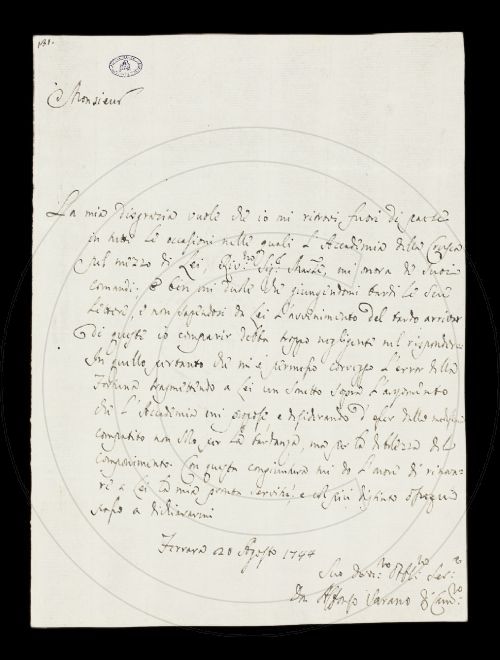 Monsieur
La mia disgrazia vuole che io mi ritrovi fuori di parte
in tutte le occasioni nelle quali l'Accademia della Crusca
sul mezzo di Lei, mi onora de' suoi
comandi; e ben mi duole che giungendomi tardi le sue
lettere, e non sapendosi da Lei l'avvenimento del tardo arrivar
di queste io comparir debba troppo negligente nel rispondere.
In quello pertanto che mi è permesso correggo l'error della
Fortuna trasmettendo a Lei un Sonetto sopra l'argomento
che l'Accademia mi e desiderando d'esser dalla
compatito non solo per la tardanza, ma per la debolezza del
Componimento. Con questa congiuntura mi do l'onore di
a Lei la mia pronta servitù, e col più distinto ossequio
passo a dichiararmi
Ferrara 20 Agosto 1744
Suo
Don Alfonso Varano di